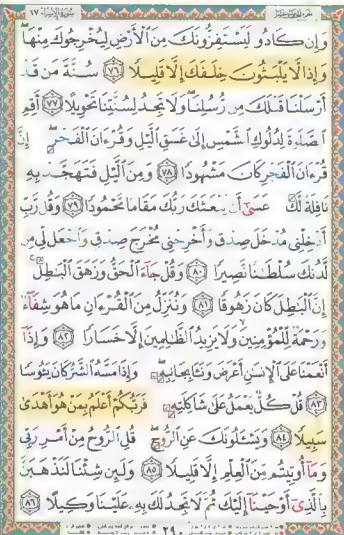 سورة الإسراء ١٧
وَإِن كَادُوا۟ لَيَسْتَفِزُّونَكَ مِنَ ٱلْأَرْضِ لِيُخْرِجُوكَ مِنْهَا
وَإِذًا لَّا يَلْبَثُونَ خِلَٰفَكَ إِلَّا قَلِيلًا ﴿٧٦﴾ سُنَّةَ مَن قَدْ
أَرْسَلْنَا قَبْلَكَ مِن رُّسُلِنَا وَلَا تَجِدُ لِسُنَّتِنَا تَحْوِيلًا ﴿٧٧﴾ أَقِمِ
ٱلصَّلَوٰةَ لِدُلُوكِ ٱلشَّمْسِ إِلَىٰ غَسَقِ ٱلَّيْلِ وَقُرْءَانَ ٱلْفَجْرِ إِنَّ
قُرْءَانَ ٱلْفَجْرِ كَانَ مَشْهُودًا ﴿٧٨﴾ وَمِنَ ٱلَّيْلِ فَتَهَجَّدْ بِهِۦ
نَافِلَةً لَّكَ عَسَىٰٓ أَن يَبْعَثَكَ رَبُّكَ مَقَامًا مَّحْمُودًا ﴿٧٩﴾ وَقُل رَّبِّ
أَدْخِلْنِى مُدْخَلَ صِدْقٍ وَأَخْرِجْنِى مُخْرَجَ صِدْقٍ وَٱجْعَل لِّى مِن
لَّدُنكَ سُلْطَٰنًا نَّصِيرًا ﴿٨٠﴾ وَقُلْ جَآءَ ٱلْحَقُّ وَزَهَقَ ٱلْبَٰطِلُ
إِنَّ ٱلْبَٰطِلَ كَانَ زَهُوقًا ﴿٨١﴾ وَنُنَزِّلُ مِنَ ٱلْقُرْءَانِ مَا هُوَ شِفَآءٌ
وَرَحْمَةٌ لِّلْمُؤْمِنِينَ وَلَا يَزِيدُ ٱلظَّٰلِمِينَ إِلَّا خَسَارًا ﴿٨٢﴾ وَإِذَآ
أَنْعَمْنَا عَلَى ٱلْإِنسَٰنِ أَعْرَضَ وَنَـَٔا بِجَانِبِهِۦ وَإِذَا مَسَّهُ ٱلشَّرُّ كَانَ يَـُٔوسًا
﴿٨٣﴾ قُلْ كُلٌّ يَعْمَلُ عَلَىٰ شَاكِلَتِهِۦ فَرَبُّكُمْ أَعْلَمُ بِمَنْ هُوَ أَهْدَىٰ
سَبِيلًا ﴿٨٤﴾ وَيَسْـَٔلُونَكَ عَنِ ٱلرُّوحِ قُلِ ٱلرُّوحُ مِنْ أَمْرِ رَبِّى
وَمَآ أُوتِيتُم مِّنَ ٱلْعِلْمِ إِلَّا قَلِيلًا ﴿٨٥﴾ وَلَئِن شِئْنَا لَنَذْهَبَنَّ
بِٱلَّذِىٓ أَوْحَيْنَآ إِلَيْكَ ثُمَّ لَا تَجِدُ لَكَ بِهِۦ عَلَيْنَا وَكِيلًا ﴿٨٦﴾
٢٩٠